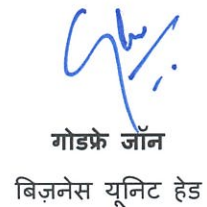 गोडफ्रे जॉन
बिज़नेस यूनिट हेड